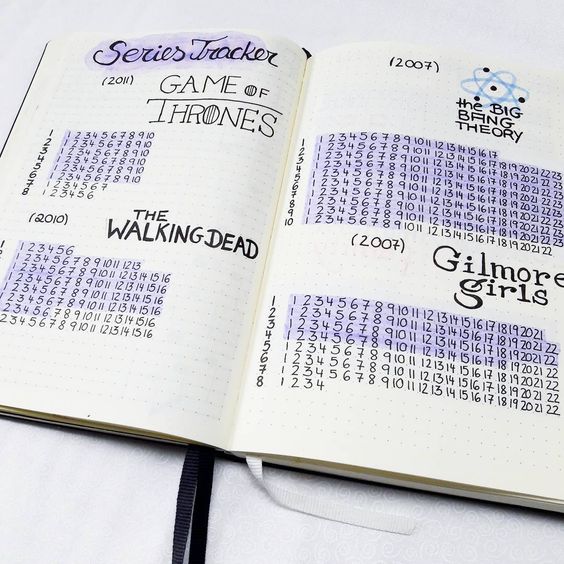 Series Tracker
(2011)
GAME OF
THRONES
1 1 2 3 4 5 6 7 8 9 10
2 1 2 3 4 5 6 7 8 9 10
3 1 2 3 4 5 6 7 8 9 10
4 1 2 3 4 5 6 7 8 9 10
5 1 2 3 4 5 6 7 8 9 10
6 1 2 3 4 5 6 7 8 9 10
7 1 2 3 4 5 6 7
8 1 2 3 4 5 6
(2010)
THE
WALKING DEAD
1 2 3 4 5 6
1 2 3 4 5 6 7 8 9 10 11 12 13
1 2 3 4 5 6 7 8 9 10 11 12 13 14 15 16
1 2 3 4 5 6 7 8 9 10 11 12 13 14 15 16
1 2 3 4 5 6 7 8 9 10 11 12 13 14 15 16
1 2 3 4 5 6 7 8 9 10 11 12 13 14 15 16
2 3 4 5 6 7 8 9 10 11 12 13 14 15 16
(2007)
the BIG
BANG
THEORY
1 1 2 3 4 5 6 7 8 9 10 11 12 13 14 15 16 17
2 1 2 3 4 5 6 7 8 9 10 11 12 13 14 15 16 17 18 19 20 21 22 23
3 1 2 3 4 5 6 7 8 9 10 11 12 13 14 15 16 17 18 19 20 21 22 23
4 1 2 3 4 5 6 7 8 9 10 11 12 13 14 15 16 17 18 19 20 21 22 23
5 1 2 3 4 5 6 7 8 9 10 11 12 13 14 15 16 17 18 19 20 21 22 23
6 1 2 3 4 5 6 7 8 9 10 11 12 13 14 15 16 17 18 19 20 21 22 23
7 1 2 3 4 5 6 7 8 9 10 11 12 13 14 15 16 17 18 19 20 21 22 23
8 1 2 3 4 5 6 7 8 9 10 11 12 13 14 15 16 17 18 19 20 21 22 23
9 1 2 3 4 5 6 7 8 9 10 11 12 13 14 15 16 17 18 19 20 21 22 23
10 1 2 3 4 5 6 7 8 9 10 11 12 13 14 15 16 17 18 19 20 21 22
(2007)
Gilmore
girls
1 1 2 3 4 5 6 7 8 9 10 11 12 13 14 15 16 17 18 19 20 21
2 1 2 3 4 5 6 7 8 9 10 11 12 13 14 15 16 17 18 19 20 21 22
3 1 2 3 4 5 6 7 8 9 10 11 12 13 14 15 16 17 18 19 20 21 22
4 1 2 3 4 5 6 7 8 9 10 11 12 13 14 15 16 17 18 19 20 21 22
5 1 2 3 4 5 6 7 8 9 10 11 12 13 14 15 16 17 18 19 20 21 22
6 1 2 3 4 5 6 7 8 9 10 11 12 13 14 15 16 17 18 19 20 21 22
7 1 2 3 4 5 6 7 8 9 10 11 12 13 14 15 16 17 18 19 20 21 22
8 1 2 3 4